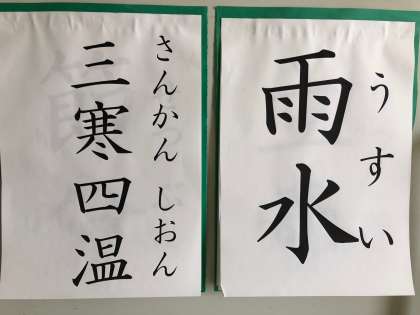 雨水
うすい
三寒四温
さんかん しおん